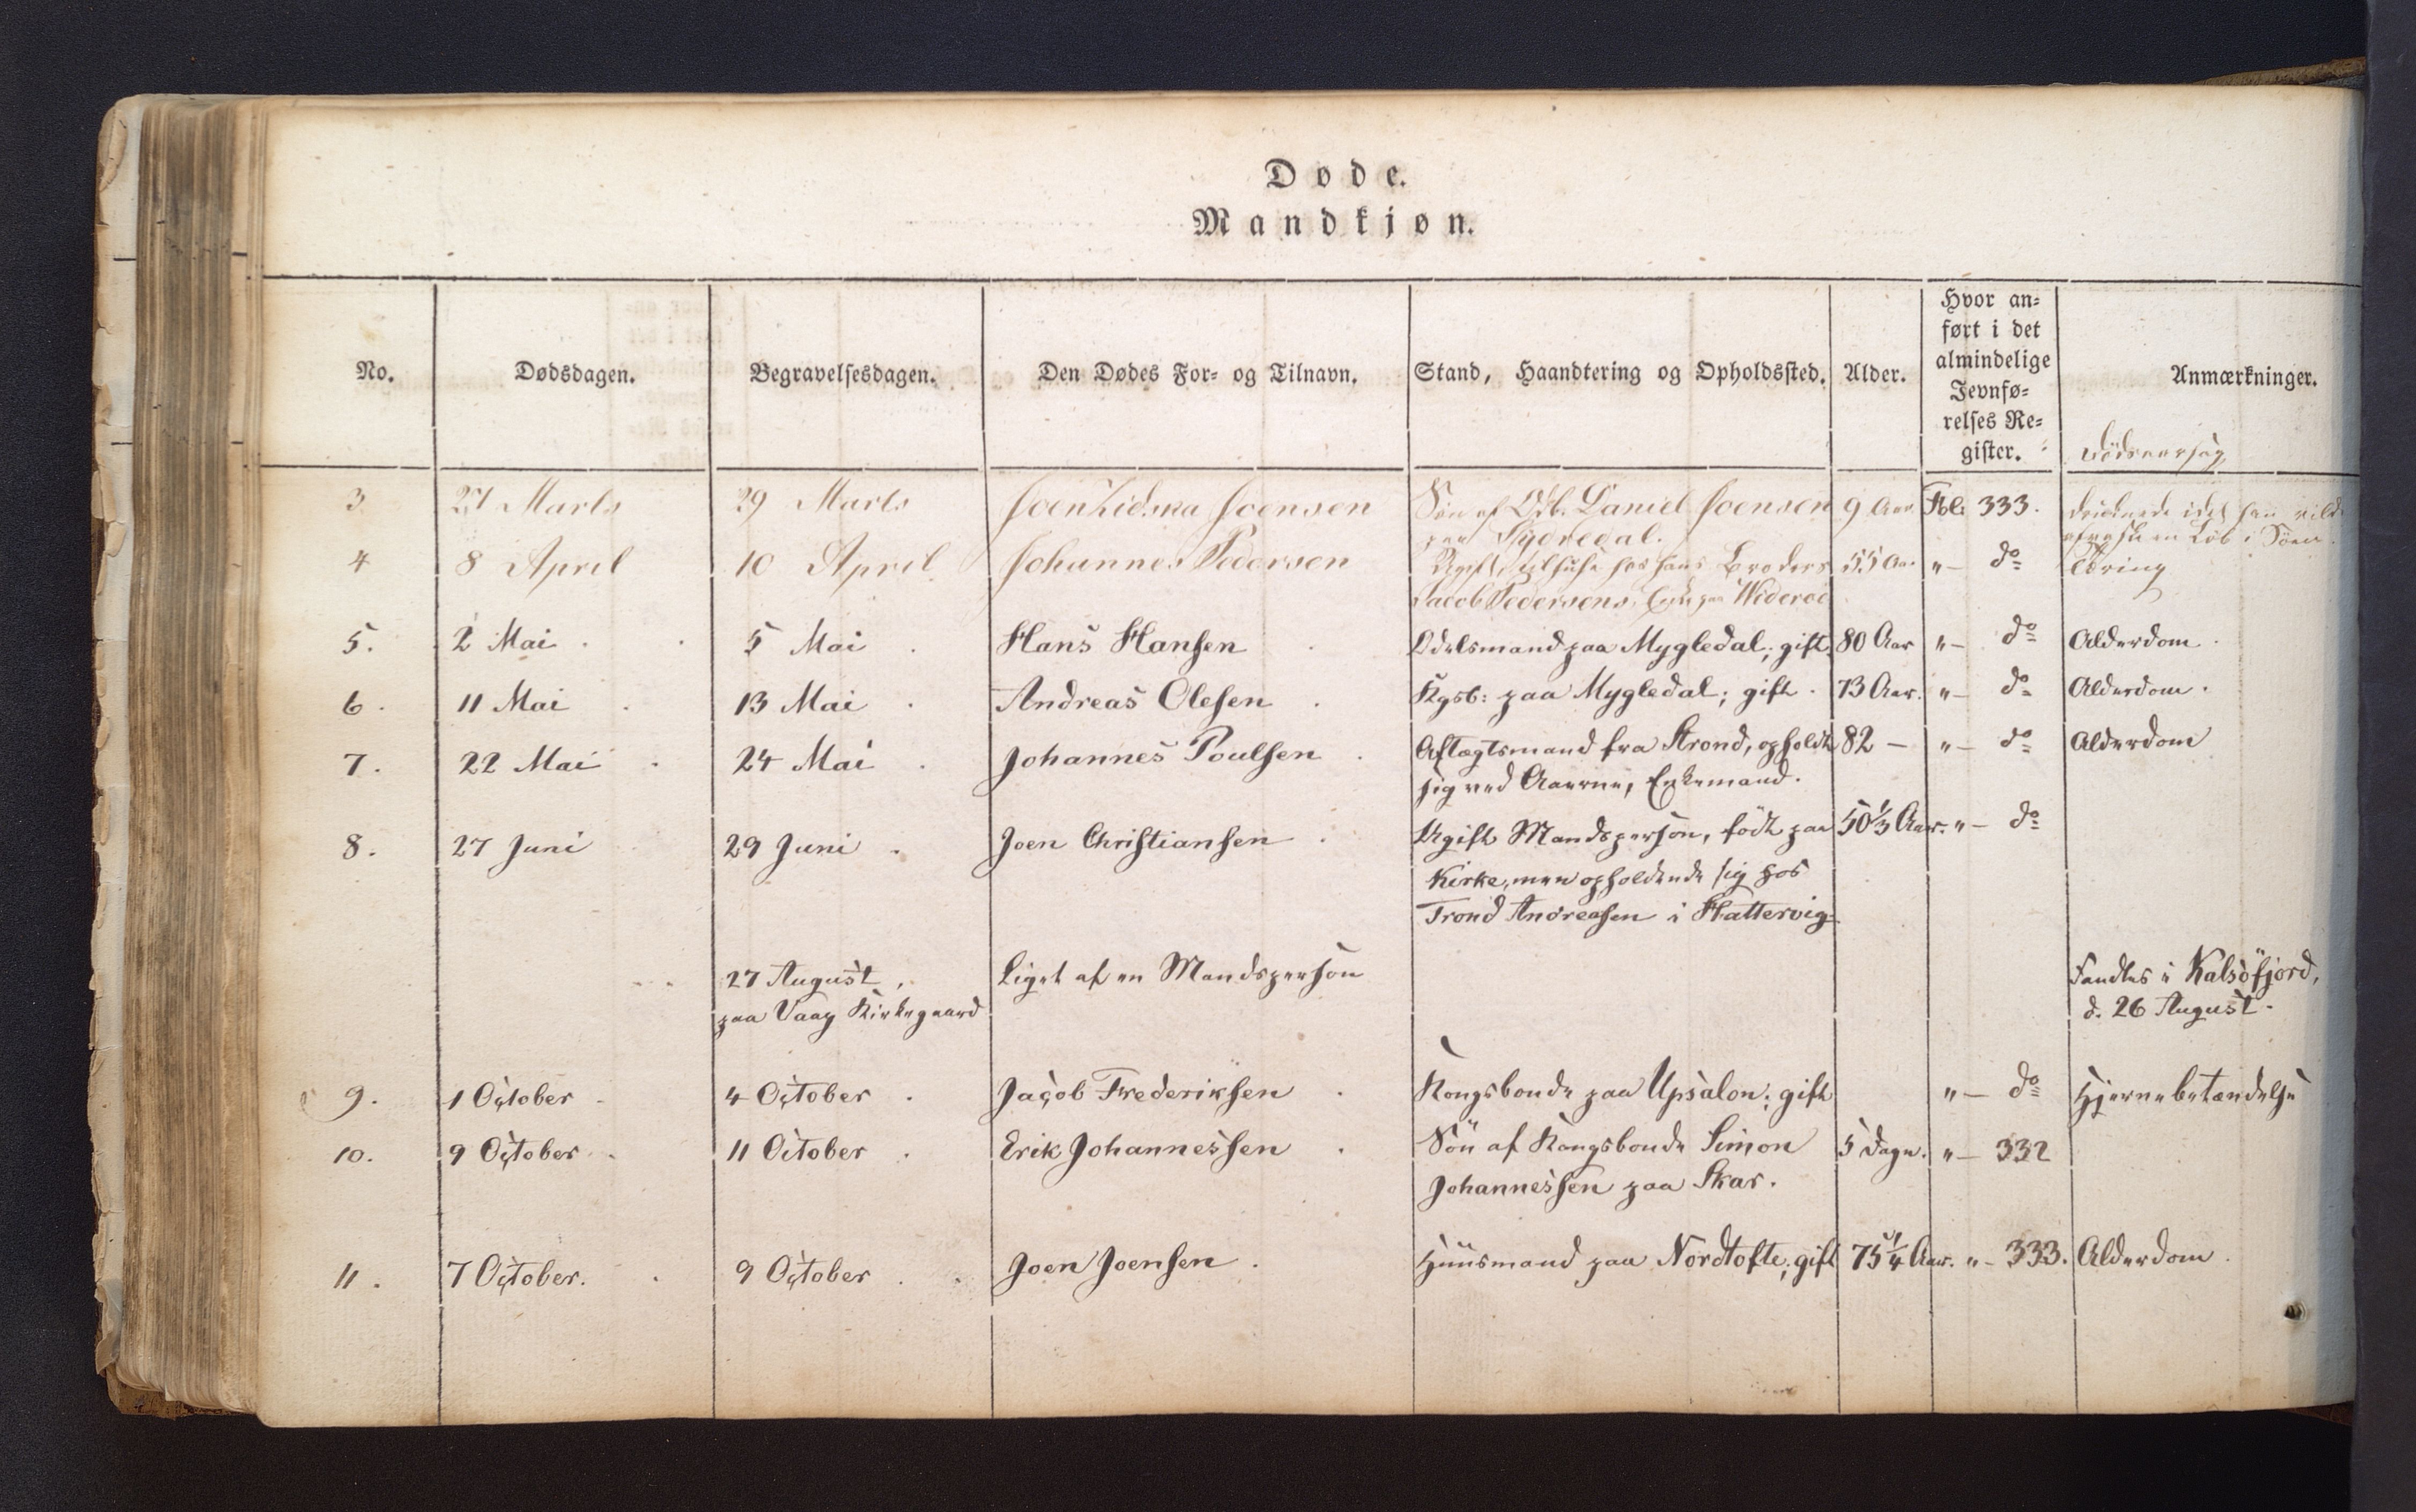 Døde.
Mandkjøn.
No. Dødsdagen. Begravelsesdagen. Den Dødes For- og Tilnavn. Stand, Haandtering og Opholdssted. Alder. Hvor an-
ført i det
almindelige
Jevnfø-
relses Re-
gister. Anmærkninger.
Dødsaarsag
3 27 Marts 29 Marts Joen Joensen Søn af Odb. Daniel Joensen 9 Aar Fol: 333. druknede idet han vilde
paa Sydredal. en Lob i Søen.
4 8 April 10 April Johannes Pedersen Ugift, hos hans Broders 55 Aar "— do
Jacob Pedersens, paa Wideroe
5. 2 Mai 5 Mai Hans Hansen Odelsmand paa Mygledal; gift. 80 Aar "— do Alderdom.
6. 11 Mai 13 Mai Andreas Olesen Kgsb: paa Mygledal; gift. 73 Aar. "— do Alderdom.
7. 22 Mai 24 Mai Johannes Poulsen Aftægtsmand fra Strond, opholdt 82 — "— do Alderdom
sig ved Aaerne, Enkemand.
8. 27 Juni 29 Juni Joen Christiansen Ugift Mandsperson, født paa 50 1/3 Aar. "— do
Kirke, men opholdende sig hos
Trond Andreasen i Hattervig
27 August, Liget af en Mandsperson Fandtes i Kalsöfjord,
paa Vaag Kirkegaard d. 26 August.
9. 1 October 4 October Jacob Frederiksen Kongsbonde paa Upsalon; gift "— do Hjernebetændelse
10. 9 October 11 October Erik Johannessen Søn af Kongsbonde Simon 5 Dage. "— 332
Johannessen paa Skar.
11. 7 October. 9 October Joen Joensen. Huusmand paa Nordtofte; gift 75 1/4 Aar. "— 333. Alderdom.